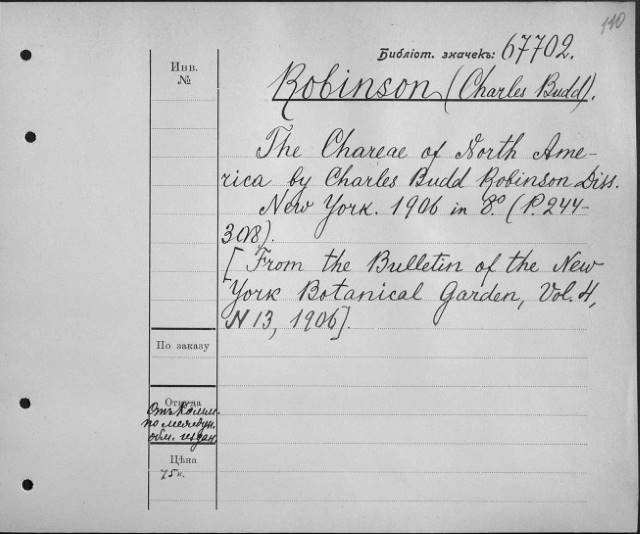 140
Библіот. значекъ: 67702.
Инв.
№
Robinson (Charles Budd).
The Chareae of North Ame-
rica by Charles Budd Robinson Diss.
New York. 1906 in 8.º (P. 244-
308).
[From the Bulletin of the New
York Botanical Garden, Vol. 4,
N 13, 1906].
По заказу
Откуда
Отъ Комм.
по междун.
обм. издан.
Цѣна
75 к.